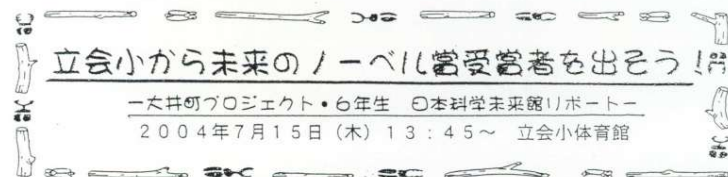 立会小から未来のノーベル賞受賞者を出そう！
ー大井町プロジェクト・６年生　日本科学未来館リポートー
２００４年７月１５日（木）１３：４５～　立会小体育館